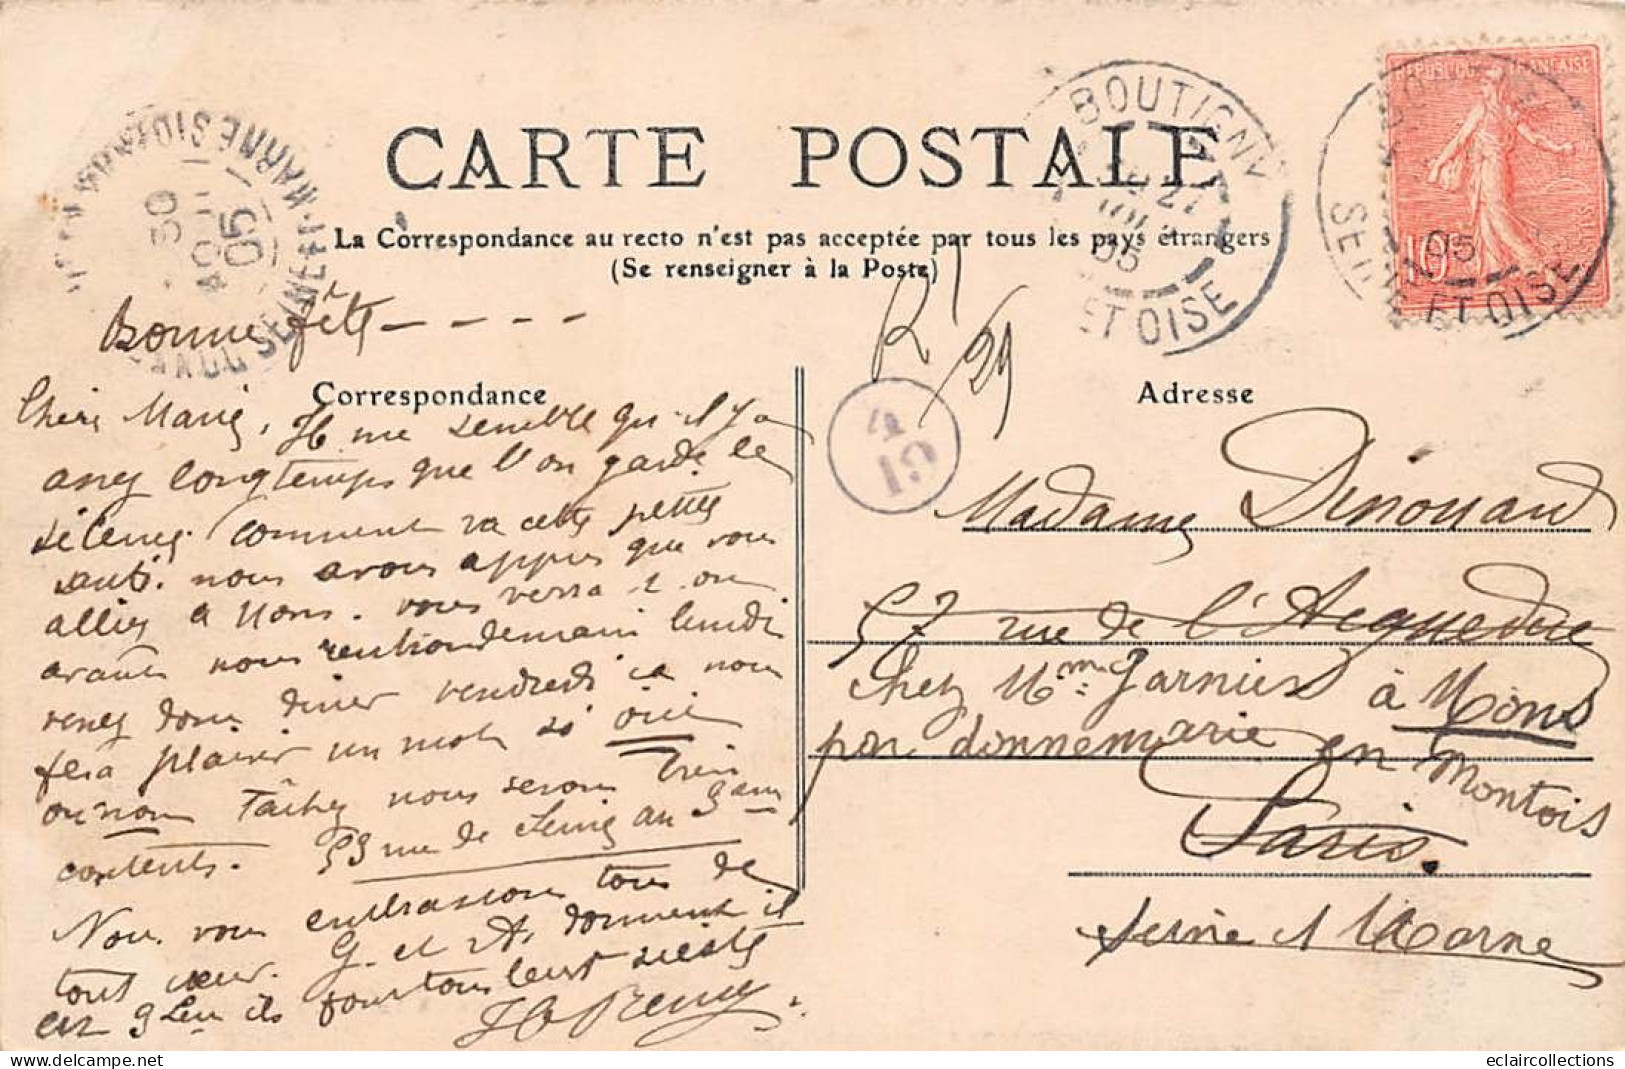 CARTE POSTALE
La Correspondance au recto n'est pas acceptée par tous les pays étrangers
(Se renseigner à la Poste)
BOUTIGNY
27
05
ET OISE
REPUBLIQUE FRANÇAISE
10
05
SEINE ET OISE
30
AOUT
05
SEINE ET MARNE
R
29
4
19
Bonne fête - - - -
Correspondance
Adresse
Chère Marie, Il me semble qu'il y a
assez longtemps que l'on garde le
silence comment va cette petite
santé. nous avons appris que vous
alliez a Mons. vous verra t. on
avant nous rentrons demain lundi
venez donc diner vendredi ça nous
fera plaisir un mot si oui
ou non Tâchez nous serons bien
contents. 53 rue de Seine au 3 em
Nous vous embrassons tous de
tout cœur. G. et A. dorment il
est 9 h ils font tous leur sieste
H Remy
Madame Dinouard
57 rue de l'Acqueduc
chez Mme Garnier à Mons
par donnemarie en Montois
Paris.
Seine et Marne
eclaircollections